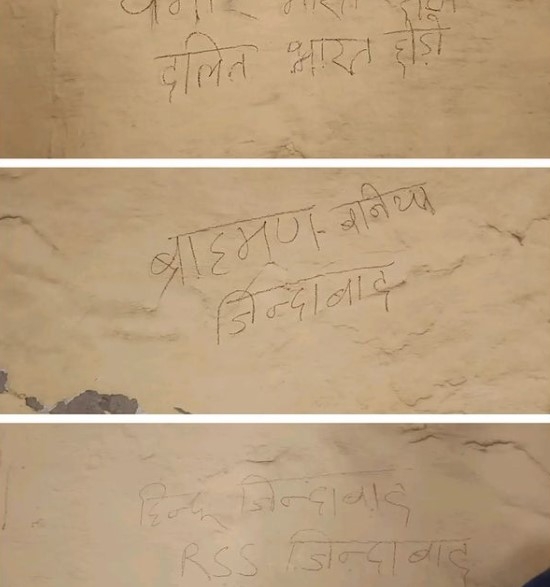 दलित भारत छोड़ो
ब्राहमण-बनिया
जिन्दाबाद
हिन्दू जिन्दाबाद
RSS जिन्दाबाद